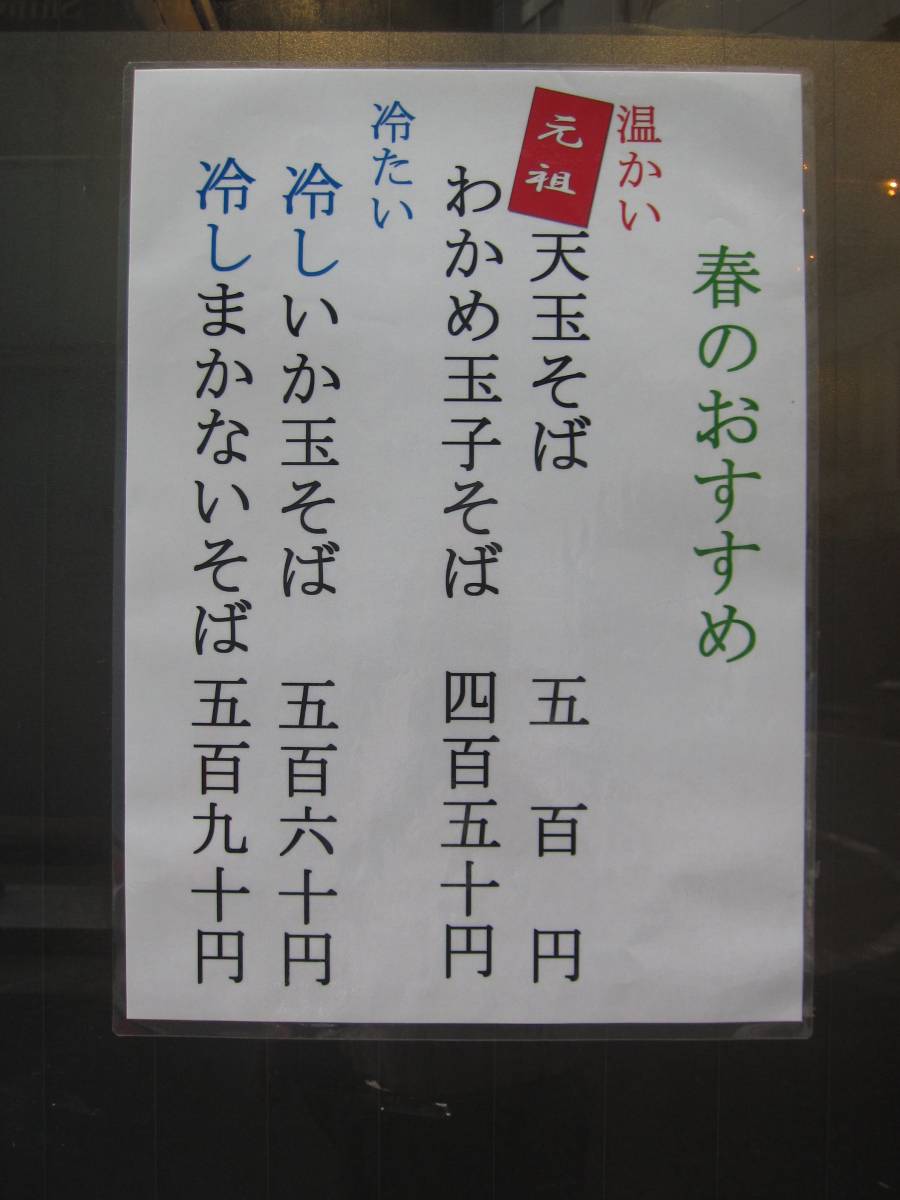 春のおすすめ
温かい
元祖
天玉そば 五百円
わかめ玉子そば 四百五十円
冷たい
冷しいか玉そば 五百六十円
冷しまかないそば 五百九十円